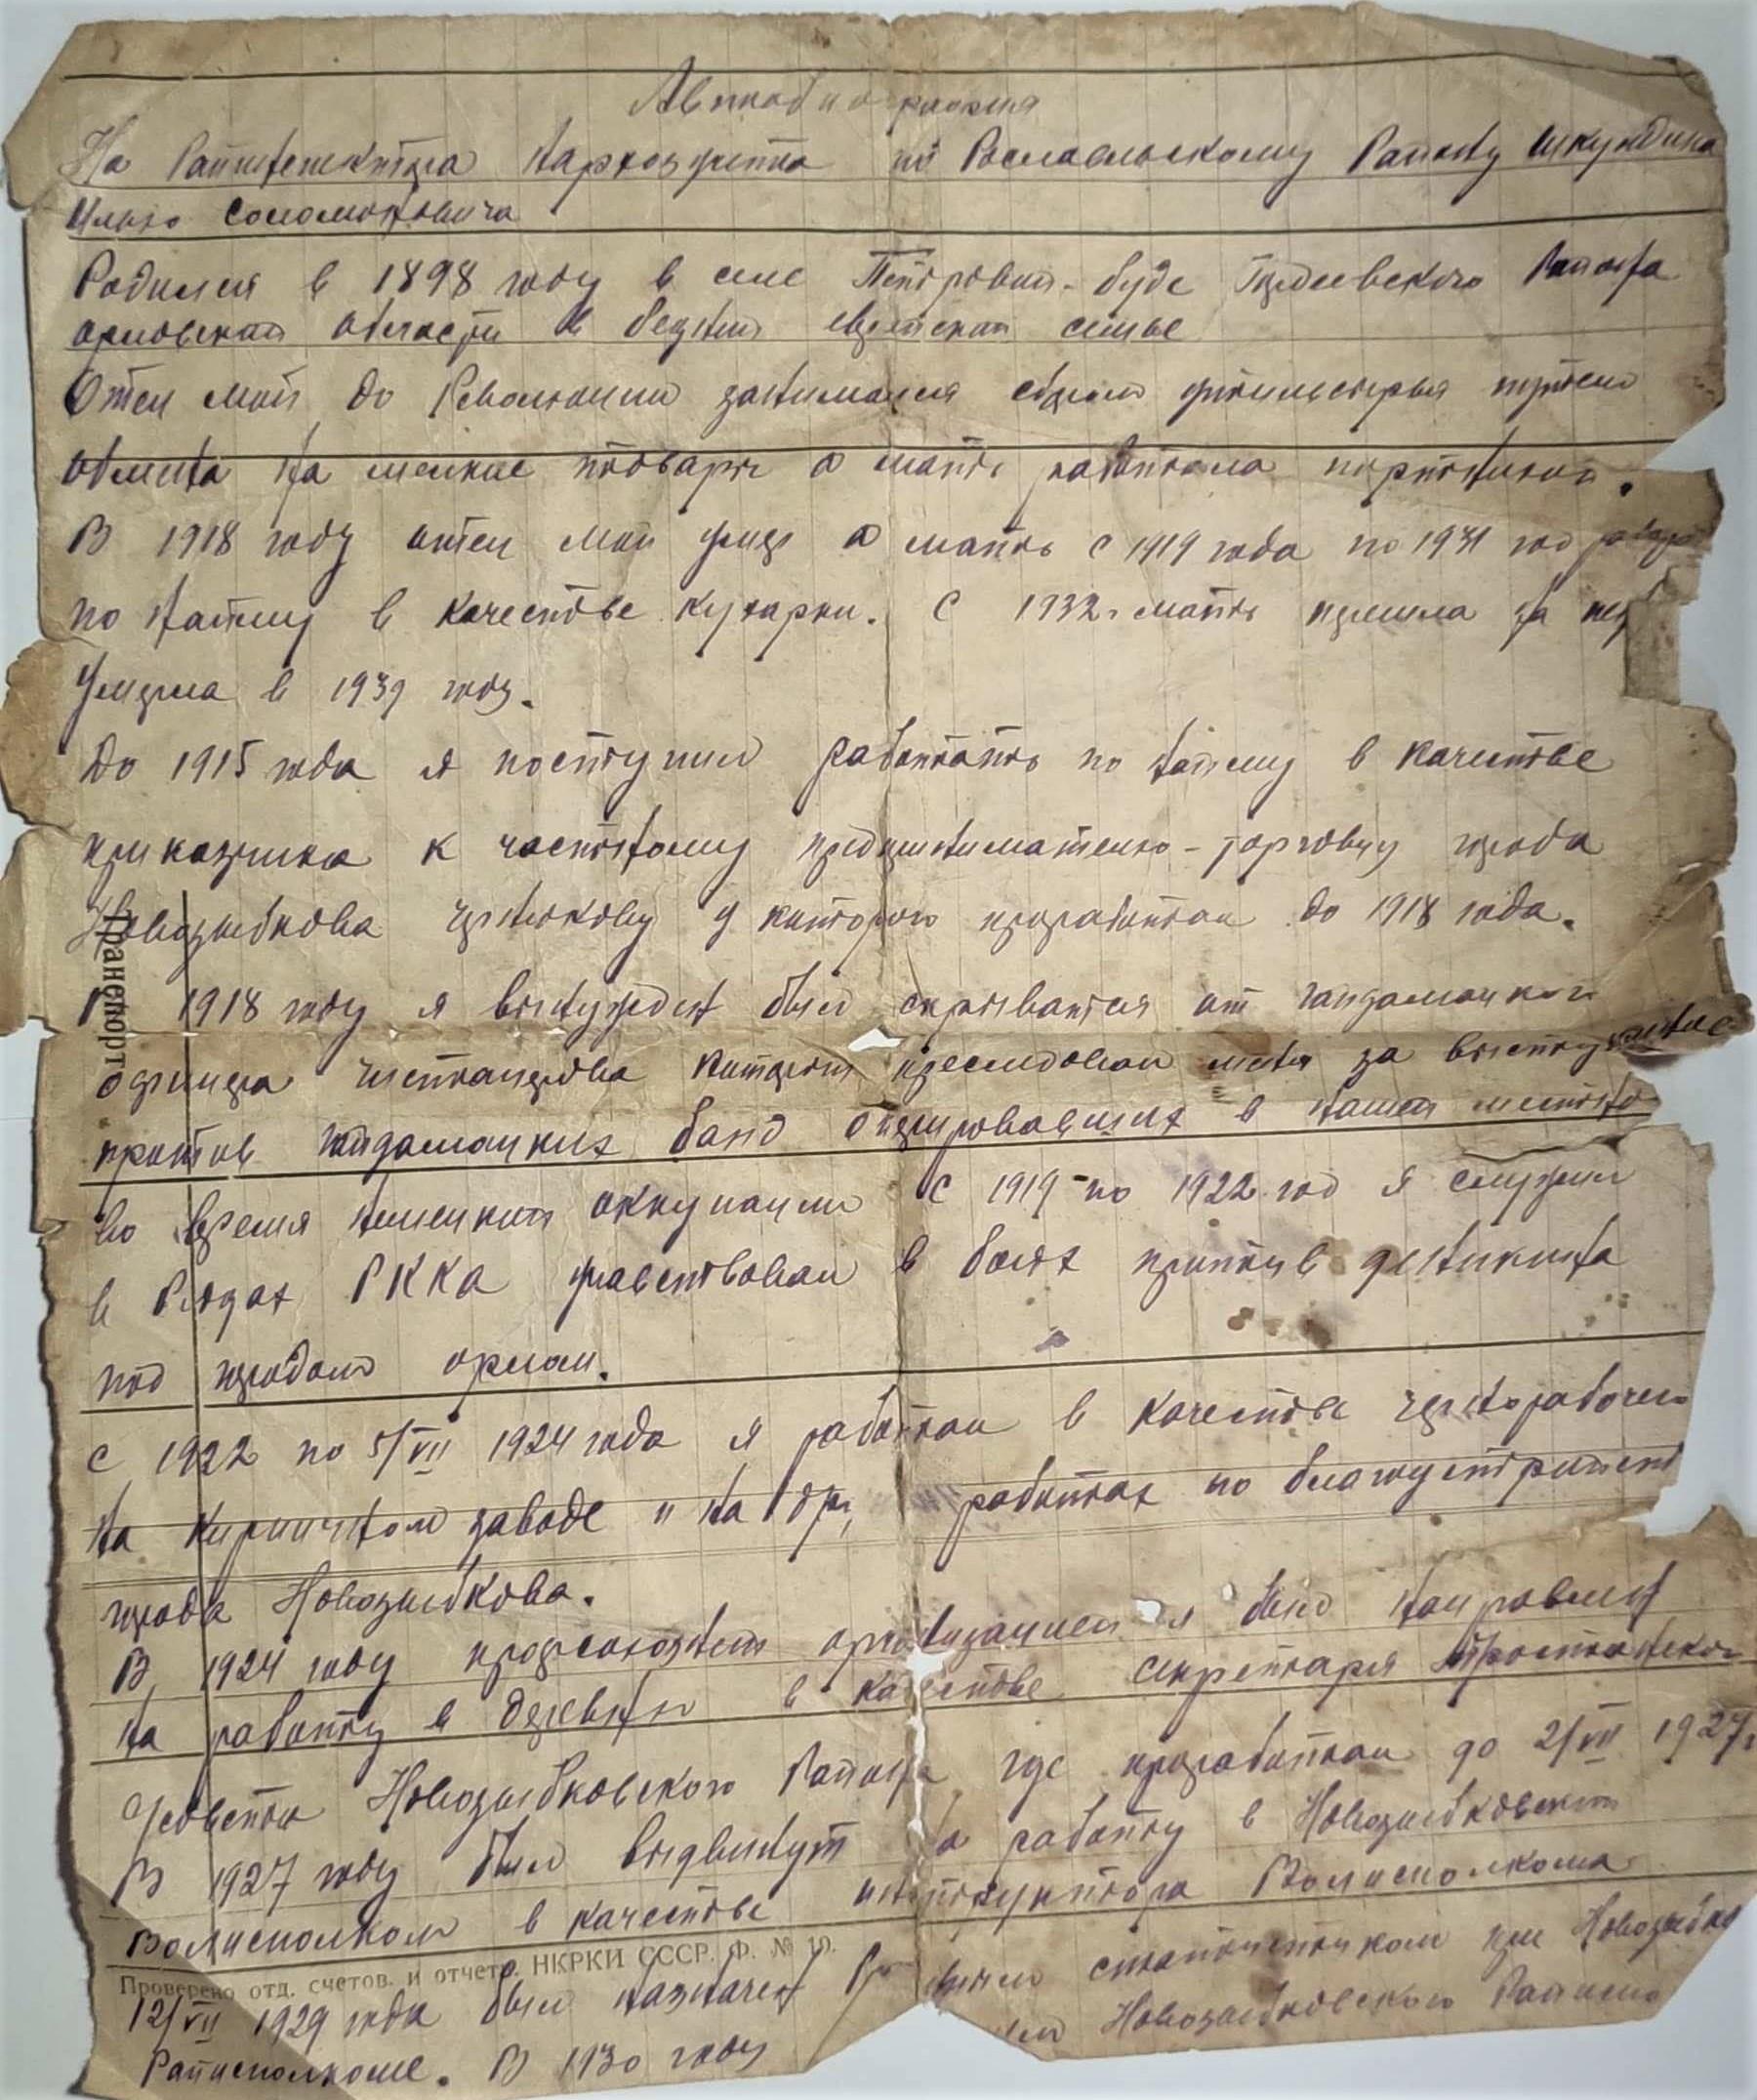 Автобиография
На Райинспектора Нархозучета по Рославльскому Району Шкундина
Илью Соломоновича
Родился в 1898 году в селе Петровая-буде Гордеевского Района
орловской области в бедной еврейской семье
Отец мой до Революции занимался сбором утильсырья путем
обмена на мелкие товары а мать работала портнихой.
В 1918 году отец мой умер а мать с 1919 года по 1931 год
по найму в качестве кухарки. С 1932г мать перешла на
Умерла в 1939 году.
До 1915 года я поступил работать по найму в качестве
приказчика к частному предпринимателю-торговцу города
Новозыбкова у которого проработал до 1918 года.
В 1918 году я вынужден был скрываться от гайдамацкого
офицера который преследовал меня за выступление
против гайдамацких банд оперировавших в нашей
во время немецкой оккупации С 1919 по 1922 год я служил
в Рядах РККА участвовал в боях против деникина
под городом орлом.
С 1922 по 5/VII 1924 года я работал в качестве чернорабочего
на кирпичном заводе и на др, работах по
города Новозыбкова.
В 1924 году профсоюзной организацией я был направлен
на работу в деревню в качестве секретаря
с/совета Новозыбковского Района где проработал до 2/VII 1927г
В 1927 году был выдвинут на работу в Новозыбковский
Волисполком в качестве инструктора Волисполкома
12/VII 1929 года был назначен статистиком при
Райисполкоме. В 1930 году Новозыбковского
Транспорт
Проверено отд. счетов. и отчетр. НКРКИ СССР. Ф. № 10.